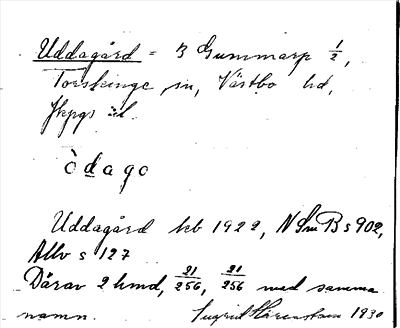 Uddagård = B Gummarp 1/2,
Torskinge sn, Västbo hd,
Jkpgs län
òdago
Uddagård kb 1922, N Sm B s 902,
Allv s 127
Därav 2 hmd, 21/256, 21/256 med samma
namn. Ingrid 1930